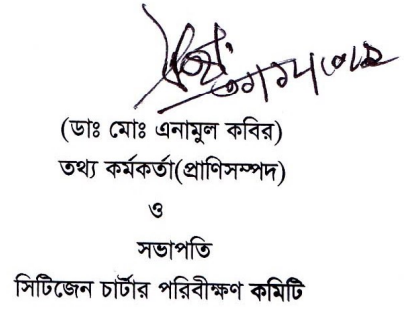 (ডাঃ মোঃ এনামুল কবির)
তথ্য কর্মকর্তা(প্রাণিসম্পদ)
ও
সভাপতি
সিটিজেন চার্টার পরিবীক্ষণ কমিটি